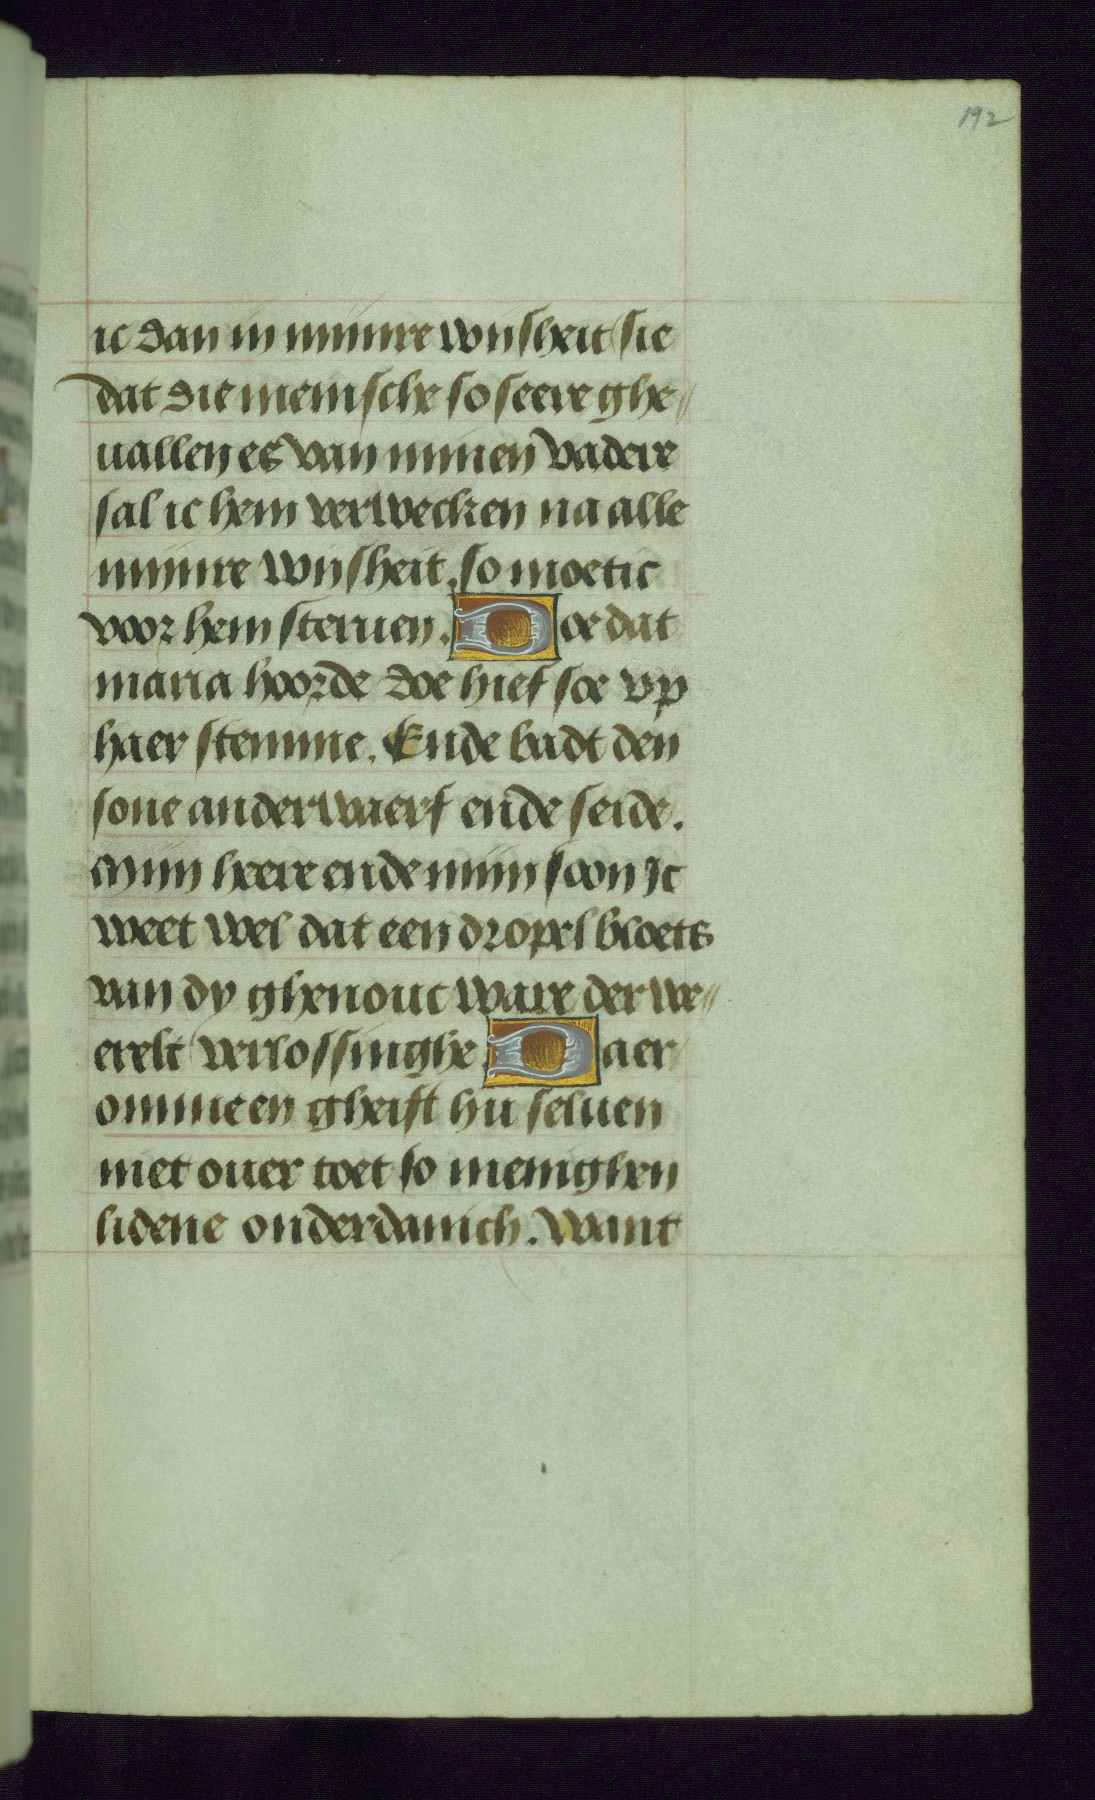 192
ic dan in mijnre wijsheit sie
dat die mensche so seere ghe//
uallen es van minen vadere
sal ic hem verwecken na alle
mijnre wijsheit, so moetic
voor hem steruen. Doe dat
maria hoorde doe hief soe vp
haer stemme. Ende badt den
sone anderwaerf ende seide.
Mijn heere ende mijn soon Ic
weet wel dat een dropel bloets
van dy ghenouc ware der we//
erelt verlossinghe. Daer
omme en gheift hu seluen
niet ouer toet so menighen
lidene onderdanich. want